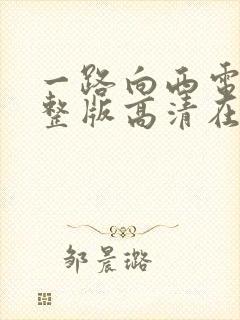 一路向西电
整版高清在
邹晨璐